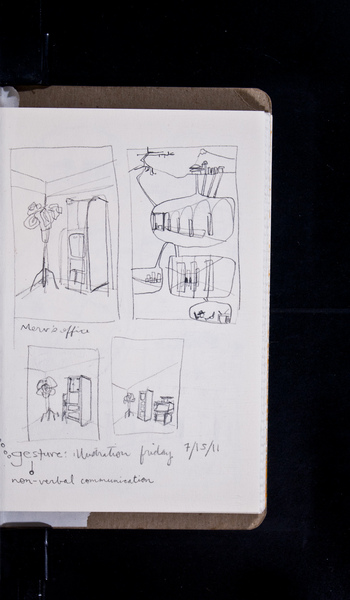 office
gesture: illustration friday 7/15/11
non-verbal communication